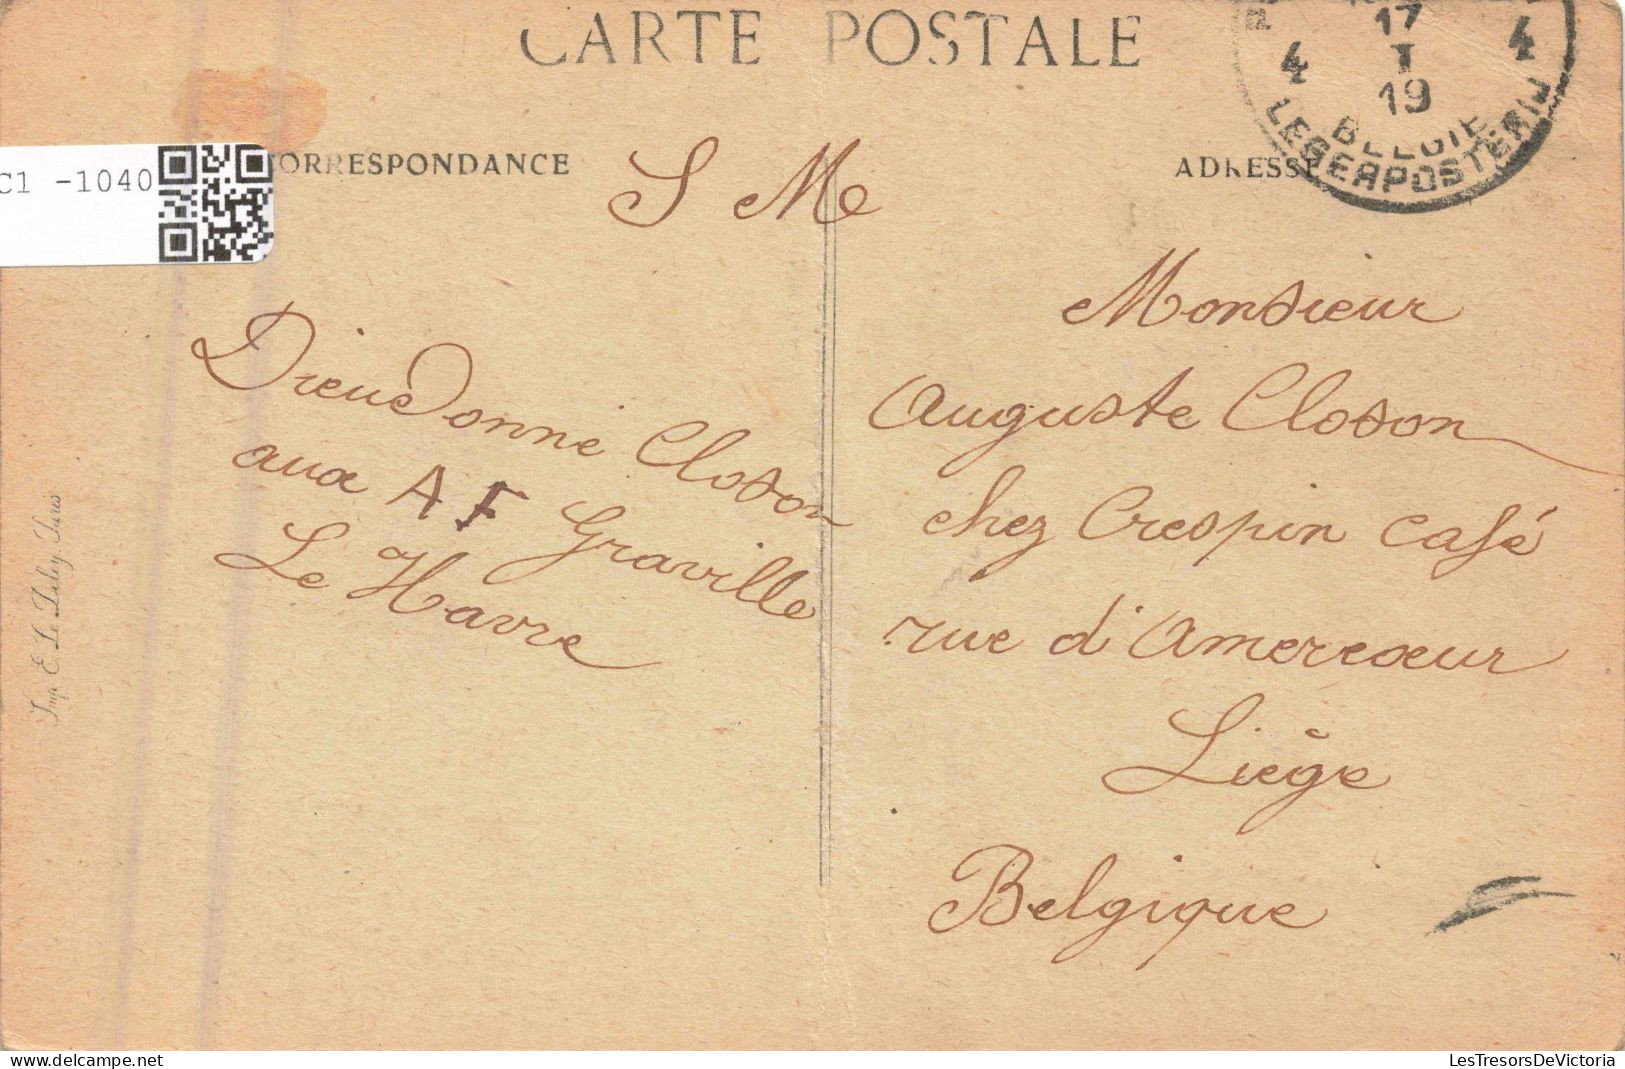 CARTE POSTALE
CORRESPONDANCE
ADRESSE
17
I
19
4
4
BELGIE
LEGERPOSTERIJ
C1 -1040
S M
Dieudonné Closon
aux A F Graville
Le Havre
Monsieur
Auguste Closon
chez Crespin café
rue d'Amercœur
Liège
Belgique
Imp. E. Le Deley, Paris
LesTresorsDeVictoria
www.delcampe.net